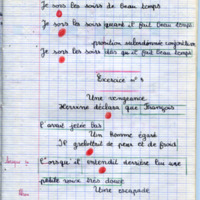 Je sors les soirs de beau temps
Je sors les soirs quand il fait beau temps
proposition subordonnée conjonctive
Je sors les soirs dès qu'il fait beau temps
Exercice n° 3
Une vengeance
Hermine déclara que François
l'avait jetée bas
Un homme égaré
Il grelottait de peur et de froid
Lorsqu'il entendit derrière lui une
petite voix très douce
Une escapade